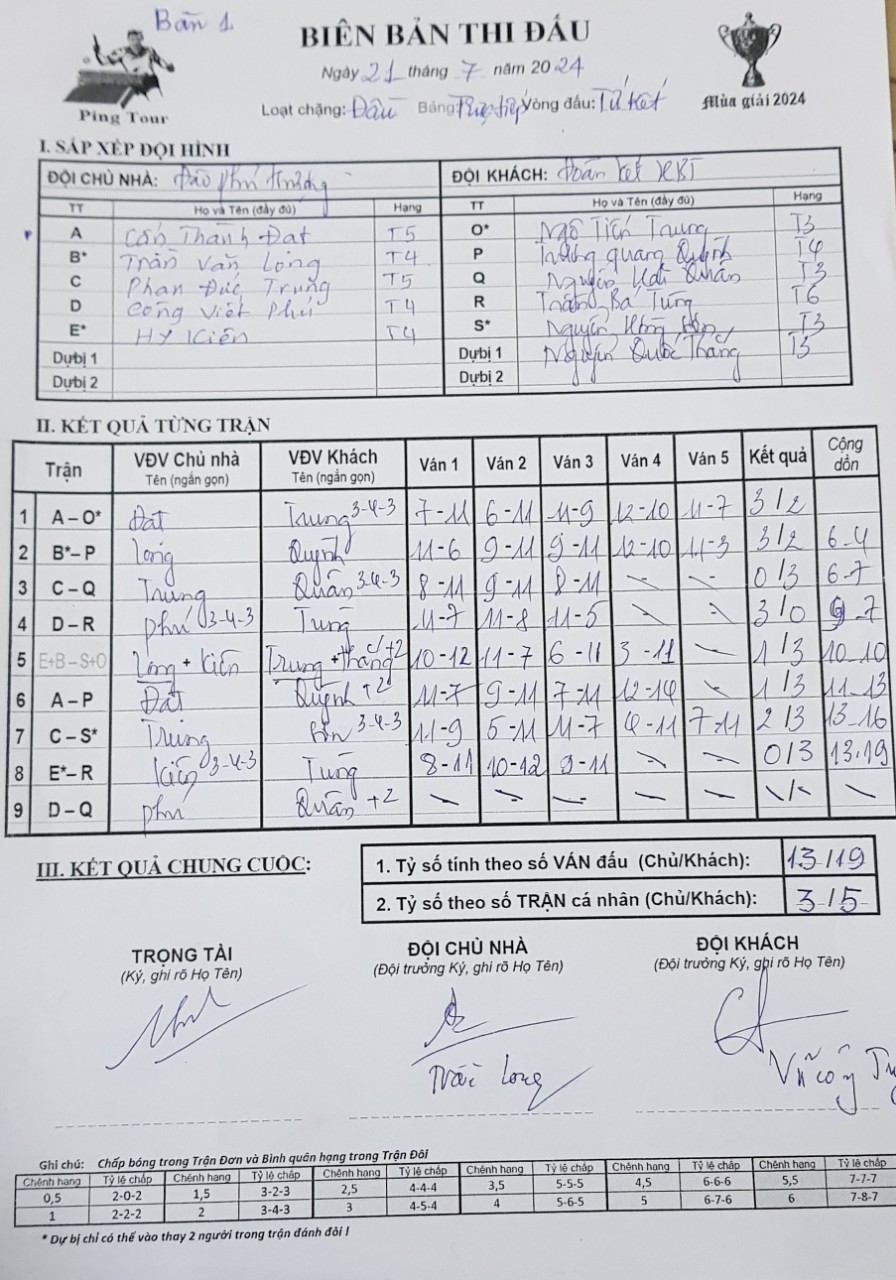 Bàn 1.
BIÊN BẢN THI ĐẤU
Ping Tour
Ngày 21 tháng 7 năm 2024
Loạt chặng: Đầu Bảng Trực tiếp Vòng đấu: Tứ kết
Mùa giải 2024
I. SẮP XẾP ĐỘI HÌNH
ĐỘI CHỦ NHÀ: Đào phú trường ĐỘI KHÁCH: Đoàn kết
TT Họ và Tên (đầy đủ) Hạng TT Họ và Tên (đầy đủ) Hạng
A Cấn Thành Đạt T5 O* Ngô Tiến Trung T3
B* Trần Văn Long T4 P quang Quỳnh T4
C Phan Đức Trung T5 Q Nguyễn Quân T3
D Công Viết Phú T4 R Bá Tùng T6
E* HY Kiên T4 S* Nguyễn T3
Dự bị 1 Dự bị 1 Nguyễn Quốc Thắng T3
Dự bị 2 Dự bị 2
II. KẾT QUẢ TỪNG TRẬN
Trận VĐV Chủ nhà Tên (ngắn gọn) VĐV Khách Tên (ngắn gọn) Ván 1 Ván 2 Ván 3 Ván 4 Ván 5 Kết quả Cộng dồn
1 A – O* Đạt Trung 3-4-3 7-11 6-11 11-9 12-10 11-7 3/2
2 B* – P Long Quỳnh 11-6 9-11 9-11 12-10 11-3 3/2 6-4
3 C – Q Trung Quân 3-4-3 8-11 9-11 8-11 0/3 6-7
4 D – R Phú 3-4-3 Tùng 11-7 11-8 11-5 3/0 9-7
5 E+B – S+O Long + Kiên Trung + Thắng +2 10-12 11-7 6-11 3-11 1/3 10-10
6 A – P Đạt Quỳnh +2 11-7 9-11 7-11 12-14 1/3 11-13
7 C – S* Trung 3-4-3 11-9 5-11 11-7 4-11 7-11 2/3 13-16
8 E* – R Kiên 3-4-3 Tùng 8-11 10-12 9-11 0/3 13-19
9 D – Q Phú Quân +2
III. KẾT QUẢ CHUNG CUỘC:
1. Tỷ số tính theo số VÁN đấu (Chủ/Khách): 13/19
2. Tỷ số theo số TRẬN cá nhân (Chủ/Khách): 3/5
TRỌNG TÀI ĐỘI CHỦ NHÀ ĐỘI KHÁCH
(Ký, ghi rõ Họ Tên) (Đội trưởng Ký, ghi rõ Họ Tên) (Đội trưởng Ký, ghi rõ Họ Tên)
Long
Ghi chú: Chấp bóng trong Trận Đơn và Bình quân hạng trong Trận Đôi
Chênh hạng Tỷ lệ chấp Chênh hạng Tỷ lệ chấp Chênh hạng Tỷ lệ chấp Chênh hạng Tỷ lệ chấp Chênh hạng Tỷ lệ chấp Chênh hạng Tỷ lệ chấp
0,5 2-0-2 1,5 3-2-3 2,5 4-4-4 3,5 5-5-5 4,5 6-6-6 5,5 7-7-7
1 2-2-2 2 3-4-3 3 4-5-4 4 5-6-5 5 6-7-6 6 7-8-7
* Dự bị chỉ có thể vào thay 2 người trong trận đánh đôi !